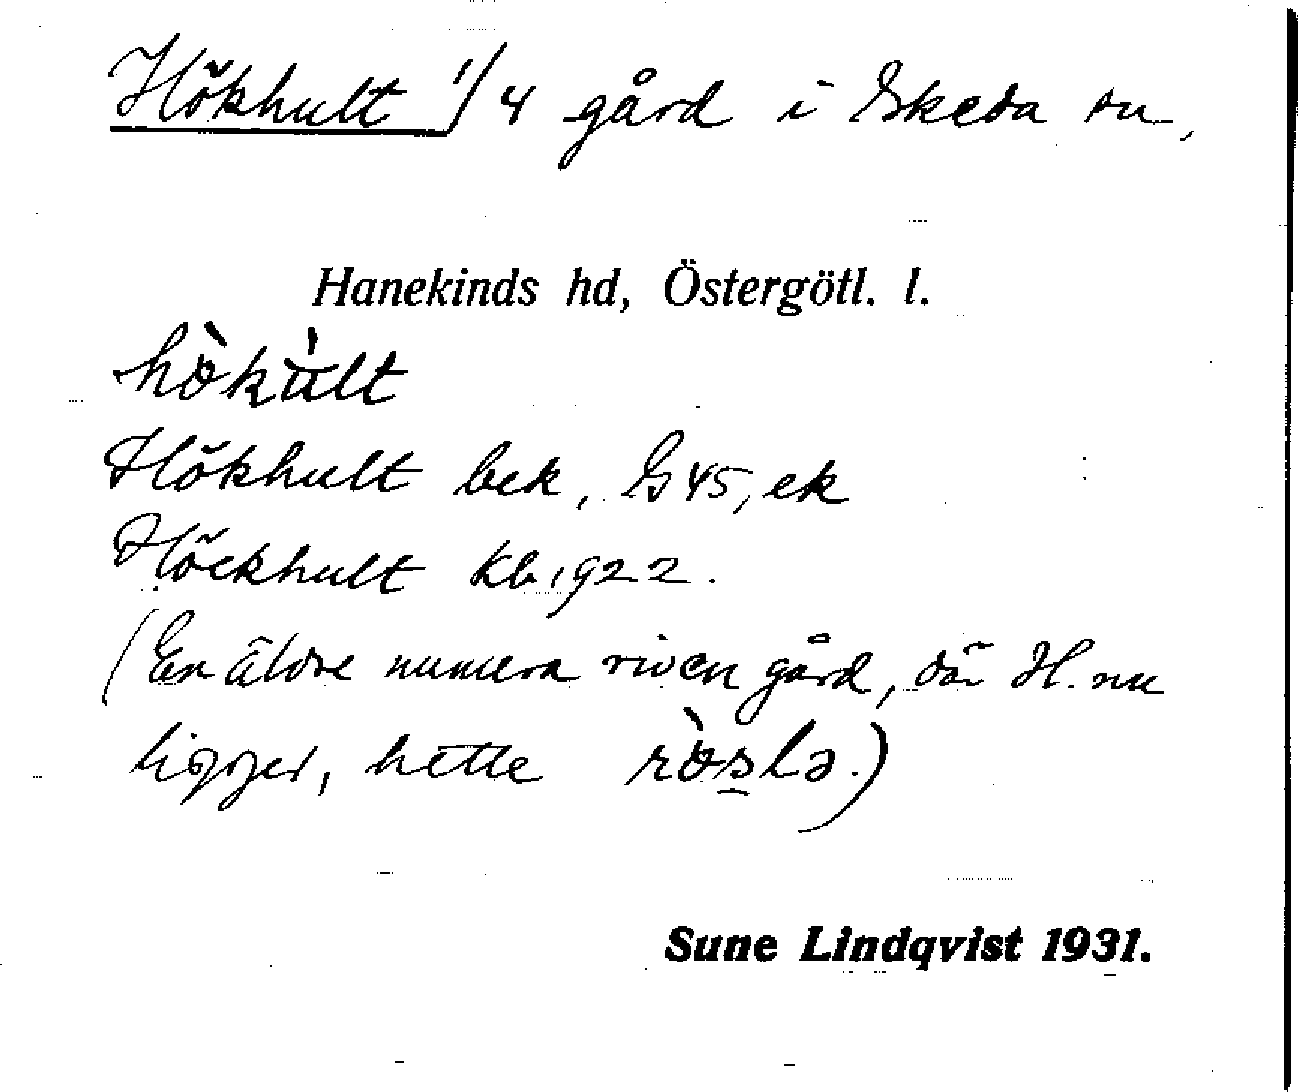 Hökhult 1/4 gård i Skeda sn,
Hanekinds hd, Östergötl. l.
Hökhult bek, G45, ek
Höckhult kb 1922.
(En äldre numera riven gård, där H. nu
ligger, hette
Sune Lindqvist 1931.